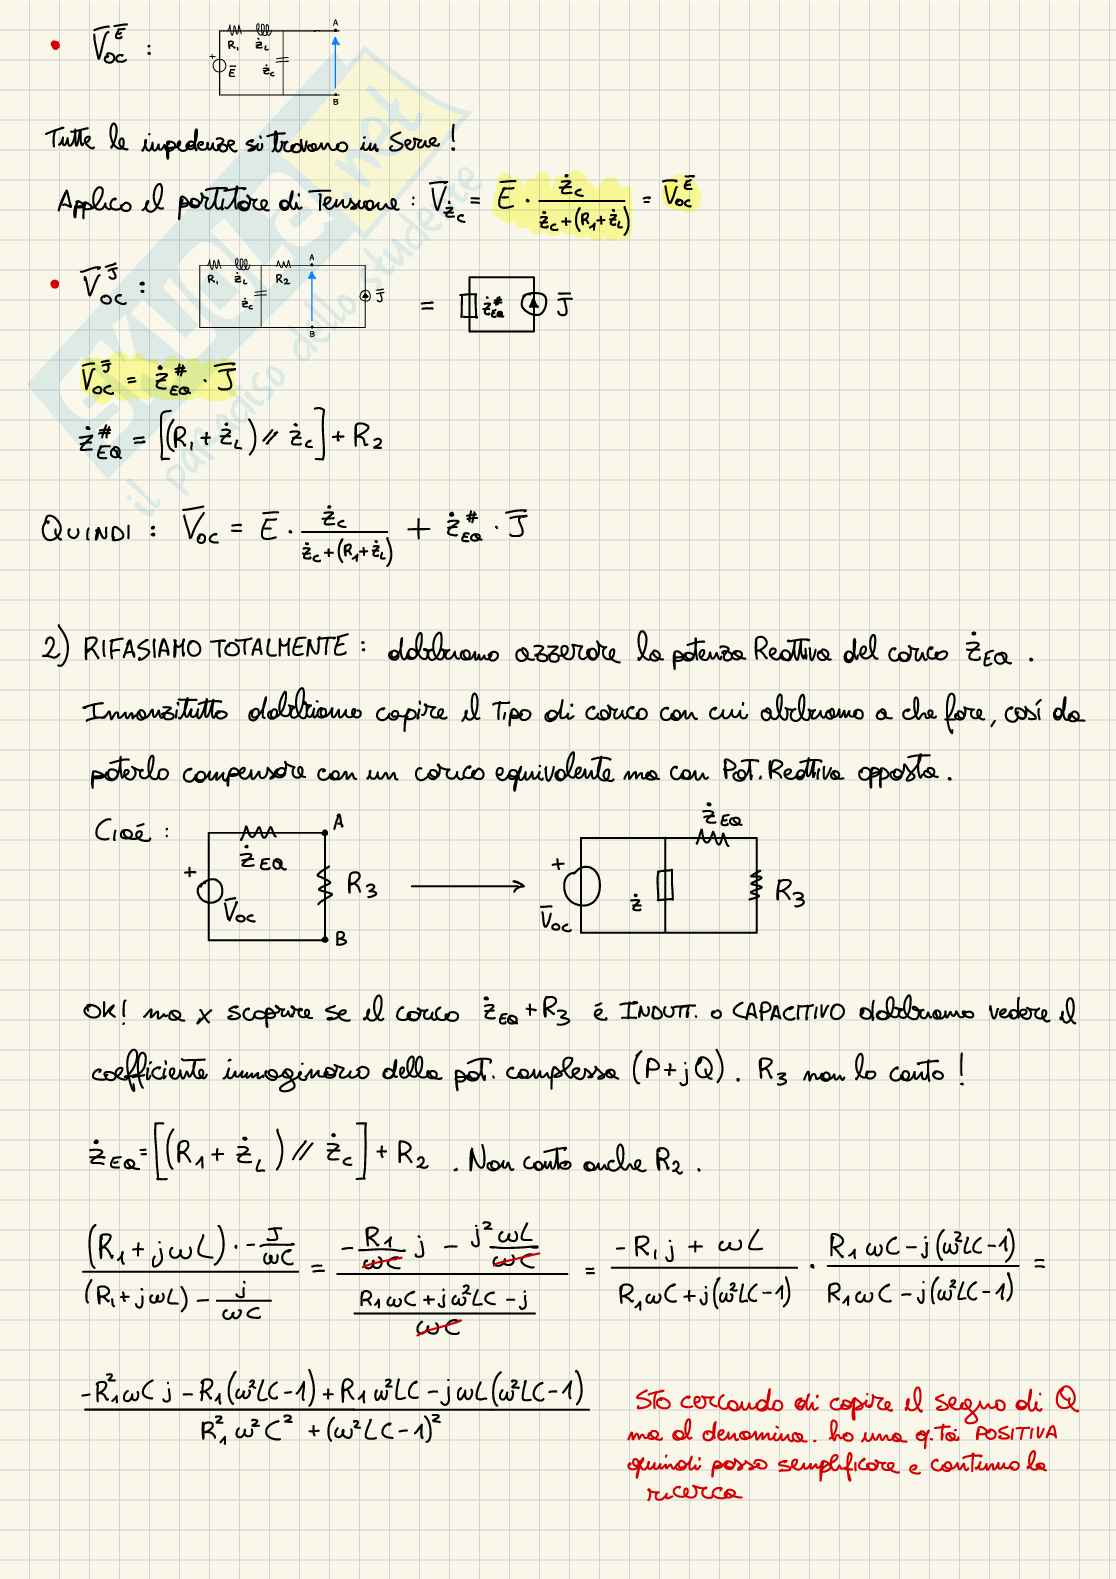 • V̅oc^E̅ :
R₁ ż_L A
+ E̅ ż_c
B
Tutte le impedenze si trovano in Serie !
Applico il partitore di Tensione : V̅_ż_c = E̅ · ż_c / (ż_c + (R₁ + ż_L)) = V̅oc^E̅
• V̅oc^J̅ :
R₁ ż_L R₂ A
ż_c J̅
B
= ż_EQ^# J̅
V̅oc^J̅ = ż_EQ^# · J̅
ż_EQ^# = [(R₁ + ż_L) // ż_c] + R₂
QUINDI : V̅oc = E̅ · ż_c / (ż_c + (R₁ + ż_L)) + ż_EQ^# · J̅
2) RIFASIAMO TOTALMENTE : dobbiamo azzerare la potenza Reattiva del carico ż_EQ .
Innanzitutto dobbiamo capire il Tipo di carico con cui abbiamo a che fare, cosí da
poterlo compensare con un carico equivalente ma con Pot. Reattiva opposta .
Cioé :
+ V̅oc ż_EQ A R₃ B
+ V̅oc ż ż_EQ R₃
OK! ma x scoprire se il carico ż_EQ + R₃ é INDUTT. o CAPACITIVO dobbiamo vedere il
coefficiente immaginario della pot. complessa (P + jQ) . R₃ non lo conto !
ż_EQ = [(R₁ + ż_L) // ż_c] + R₂ . Non conto anche R₂ .
((R₁ + jωL) · - J/ωC) / ((R₁ + jωL) - j/ωC) = (- R₁/ωC j - j² ωL/ωC) / ((R₁ωC + jω²LC - j)/ωC) = (- R₁j + ωL) / (R₁ωC + j(ω²LC-1)) · (R₁ωC - j(ω²LC-1)) / (R₁ωC - j(ω²LC-1)) =
(-R₁²ωC j - R₁(ω²LC-1) + R₁ω²LC - jωL(ω²LC-1)) / (R₁²ω²C² + (ω²LC-1)²)
STO cercando di capire il segno di Q
ma al denomina. ho una q.tà POSITIVA
quindi posso semplificare e continuo la
ricerca
SKUOLA.net
il paradiso dello studente